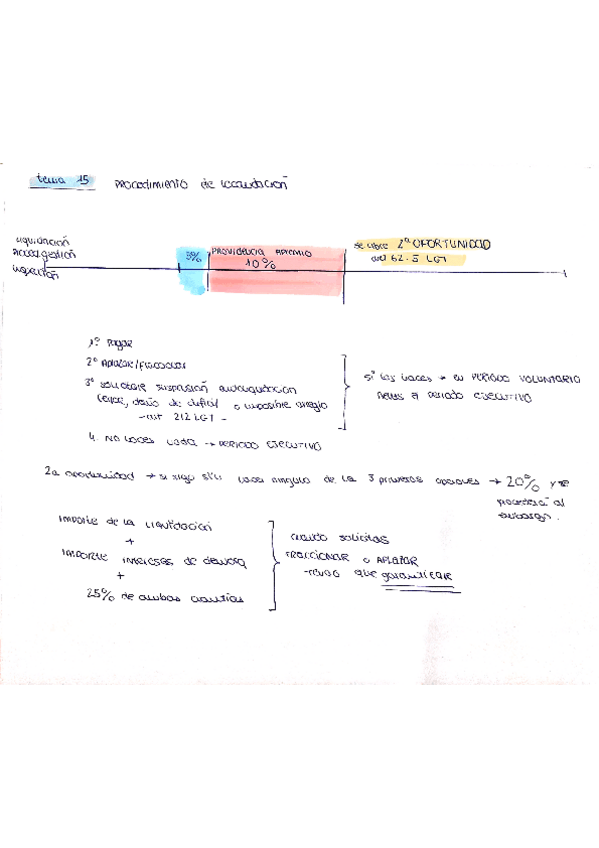 tema 15 Procedimiento de recaudación
liquidación
gestión
inspección
5%
PROVIDENCIA APREMIO
10%
se abre 2ª OPORTUNIDAD
art 62.5 LGT
1º Pagar
2º Aplazar/Fraccionar
3º solicitar suspensión autoliquidación
(error, daño de difícil o imposible arreglo
- art 212 LGT -
4. No haces nada → PERIODO EJECUTIVO
si las haces → en PERIODO VOLUNTARIO
PERIODO EJECUTIVO
2a oportunidad → si sigo sin hacer ninguna de las 3 primeras opciones → 20% y se
procederá al
embargo.
IMPORTE DE LA LIQUIDACIÓN
+
IMPORTE INTERESES DE DEMORA
+
25% de ambas cuantías
cuando solicitas
FRACCIONAR o APLAZAR
-tengo que garantizar